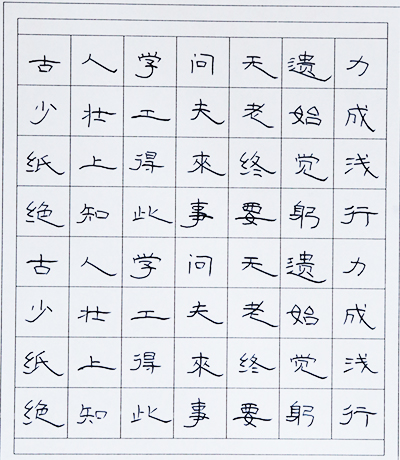 古人学问无遗力
少壮工夫老始成
纸上得來终觉浅
绝知此事要躬行
古人学问无遗力
少壮工夫老始成
纸上得來终觉浅
绝知此事要躬行